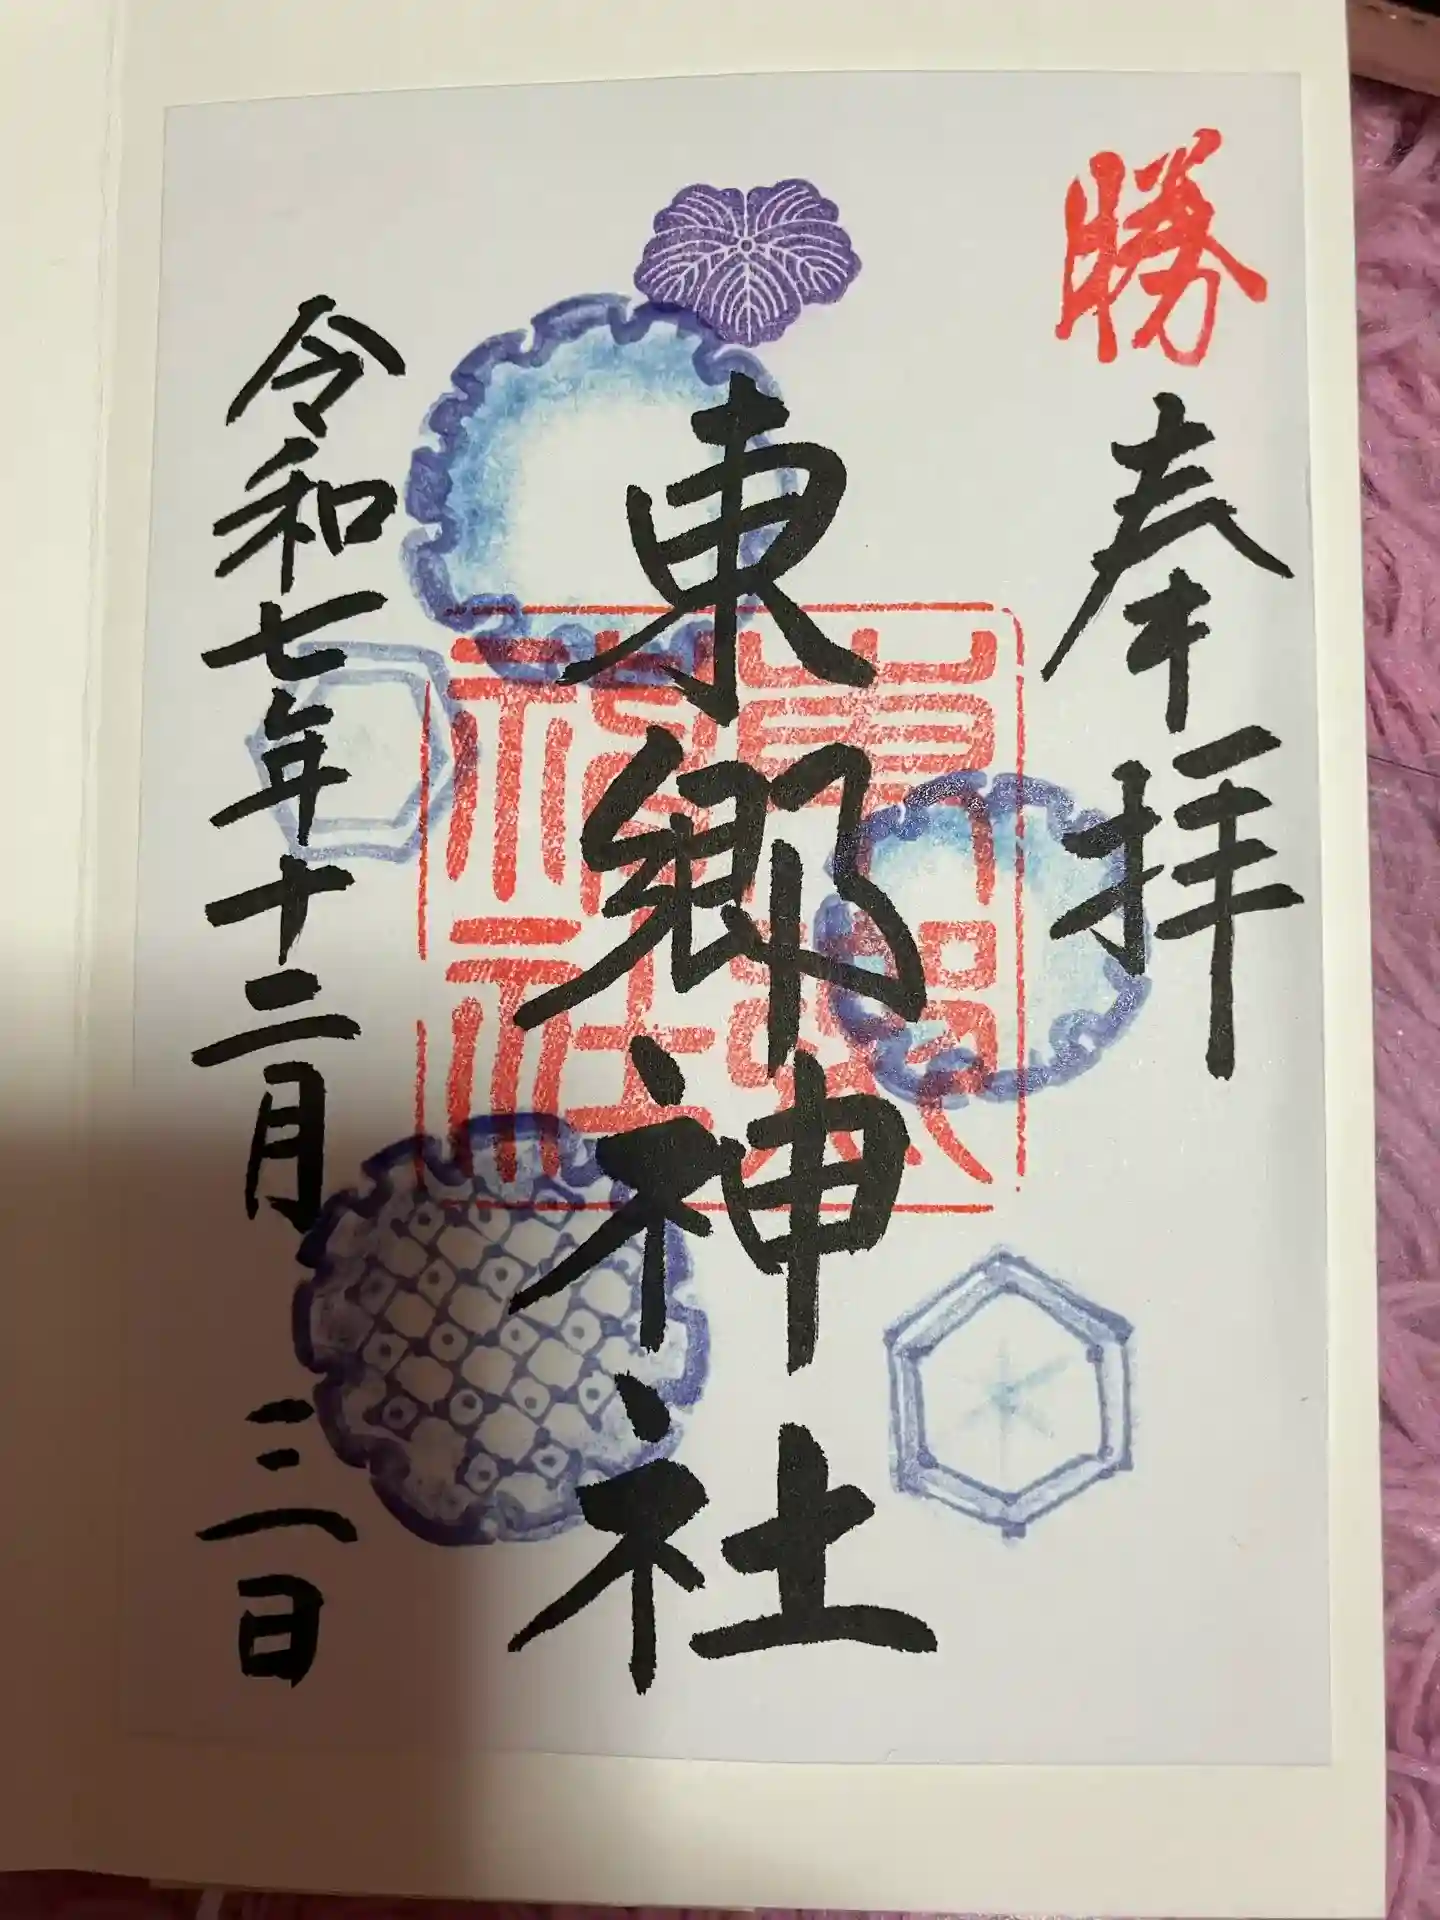 勝
奉拝
東郷神社
令和七年十二月三日